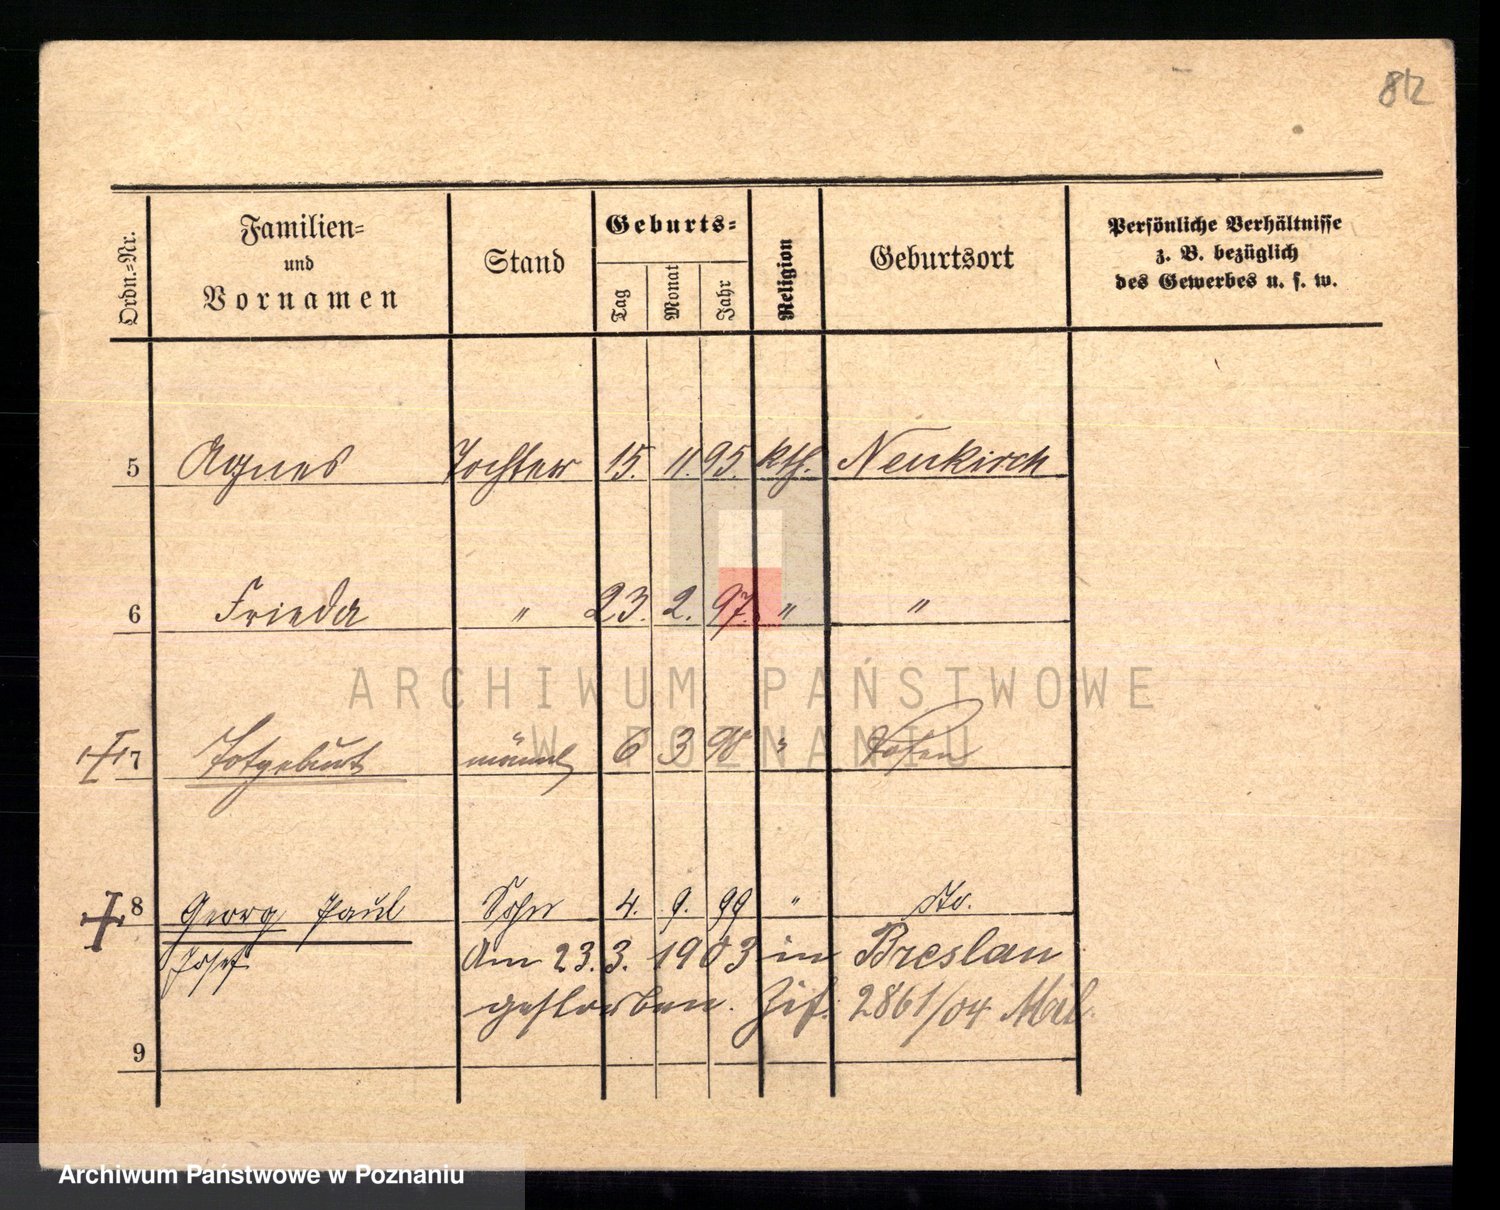 812
Ordn.-Nr.
Familien-
und
Vornamen
Stand
Geburts-
Tag
Monat
Jahr
Religion
Geburtsort
Persönliche Verhältnisse
z. B. bezüglich
des Gewerbes u. s. w.
5 Agnes Tochter 15. 11. 95. kth. Neukirch
6 Frieda " 23. 2. 97. " "
ARCHIWUM PAŃSTWOWE
W POZNANIU
7 Totgeburt männl 6 3 98 " Posen
8 Georg Paul Sohn 4. 9. 99 " do.
Josef Am 23. 3. 1903 in Breslau
gestorben. Zif. 2861/04
9
Archiwum Państwowe w Poznaniu